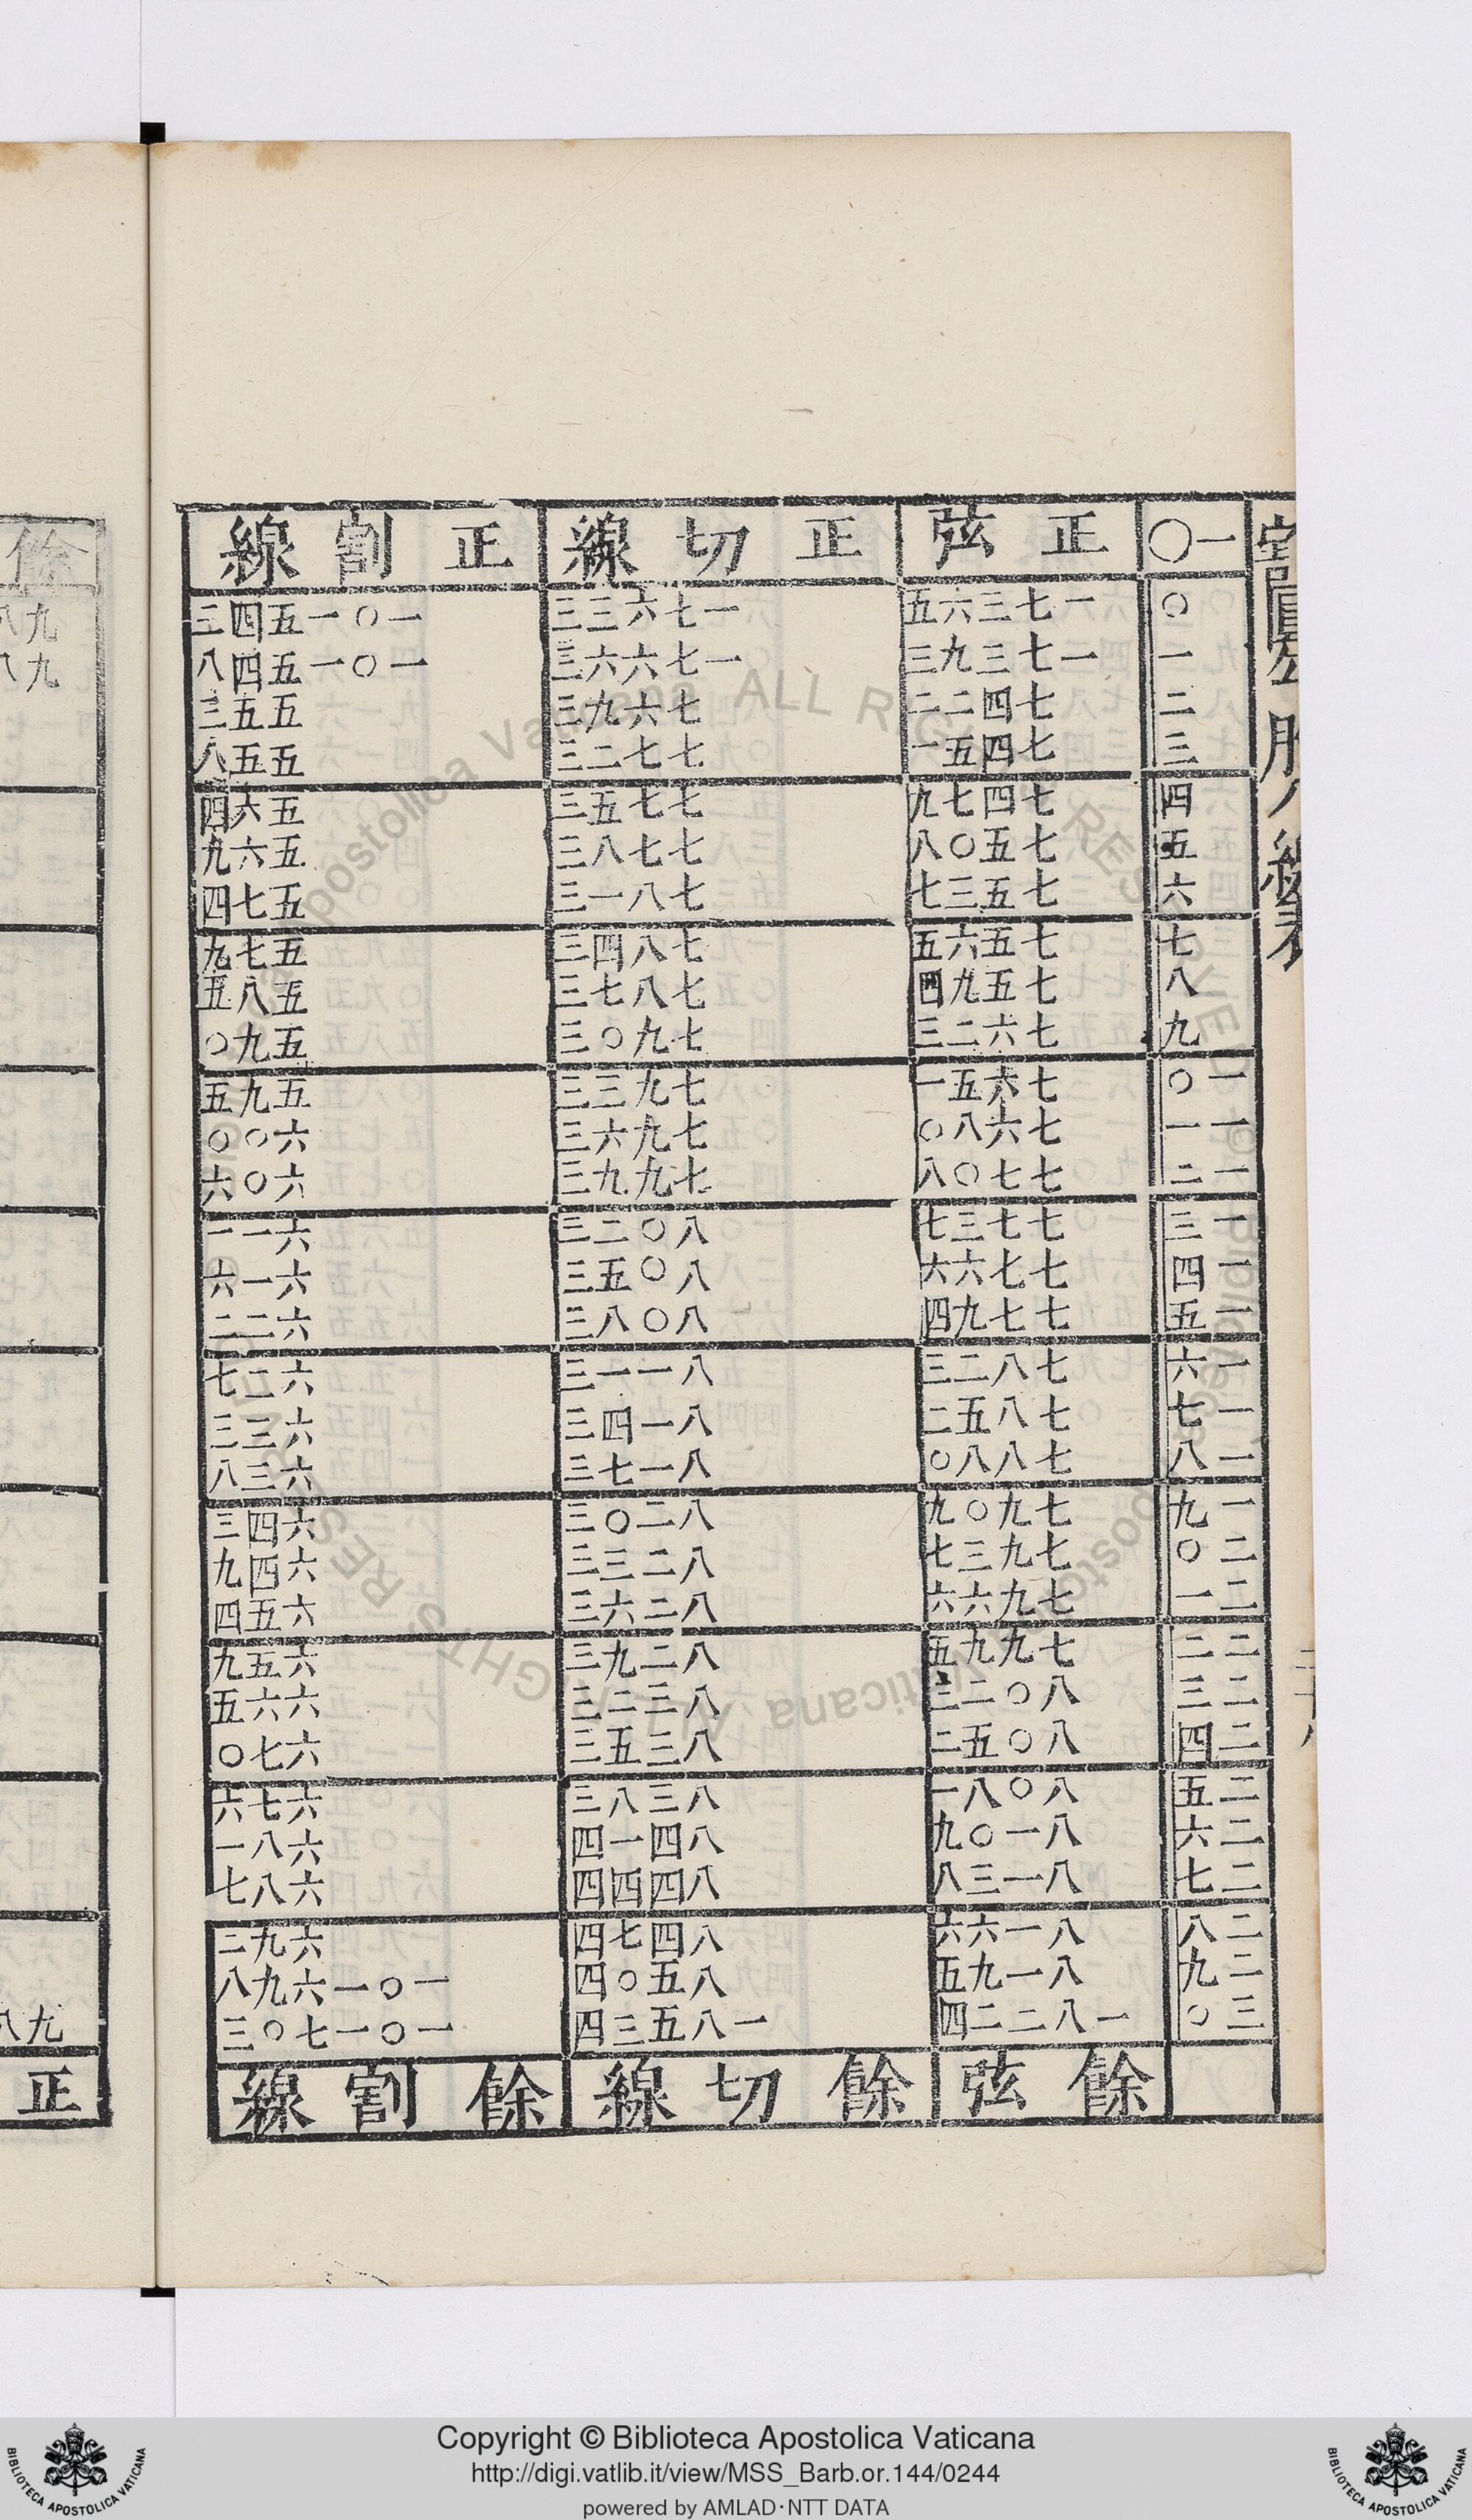 割圓勾股八線表
一〇 正弦 正切線 正割線
〇 一七三六五 一七六三三 一〇一五四三
一 一七三九三 一七六六三 一〇一五四八
二 七四二二 七六九三 五五三
三 七四五一 七七二三 五五八
四 七四七九 七七五三 五六四
五 七五〇八 七七八三 五六九
六 七五三七 七八一三 五七四
七 七五六五 七八四三 五七九
八 七五九四 七八七三 五八五
九 七六二三 七九〇三 五九〇
一〇 七六五一 七九三三 五九五
一一 七六八〇 七九六三 六〇〇
一二 七七〇八 七九九三 六〇六
一三 七七三七 八〇二三 六一一
一四 七七六六 八〇五三 六一六
一五 七七九四 八〇八三 六二二
一六 七八二三 八一一三 六二七
一七 七八五二 八一四三 六三三
一八 七八八〇 八一七三 六三八
一九 七九〇九 八二〇三 六四三
二〇 七九三七 八二三三 六四九
二一 七九六六 八二六三 六五四
二二 七九九五 八二九三 六五九
二三 八〇二三 八三二三 六六五
二四 八〇五二 八三五三 六七〇
二五 八〇八一 八三八三 六七六
二六 八一〇九 八四一四 六八一
二七 八一三八 八四四四 六八七
二八 八一六六 八四七四 六九二
二九 八一九五 八五〇四 一〇一六九八
三〇 一八二二四 一八五三四 一〇一七〇三
餘弦 餘切線 餘割線
餘
九八
九八
九八
正
Copyright © Biblioteca Apostolica Vaticana
http://digi.vatlib.it/view/MSS_Barb.or.144/0244
powered by AMLAD·NTT DATA
BIBLIOTECA APOSTOLICA VATICANA
BIBLIOTECA APOSTOLICA VATICANA